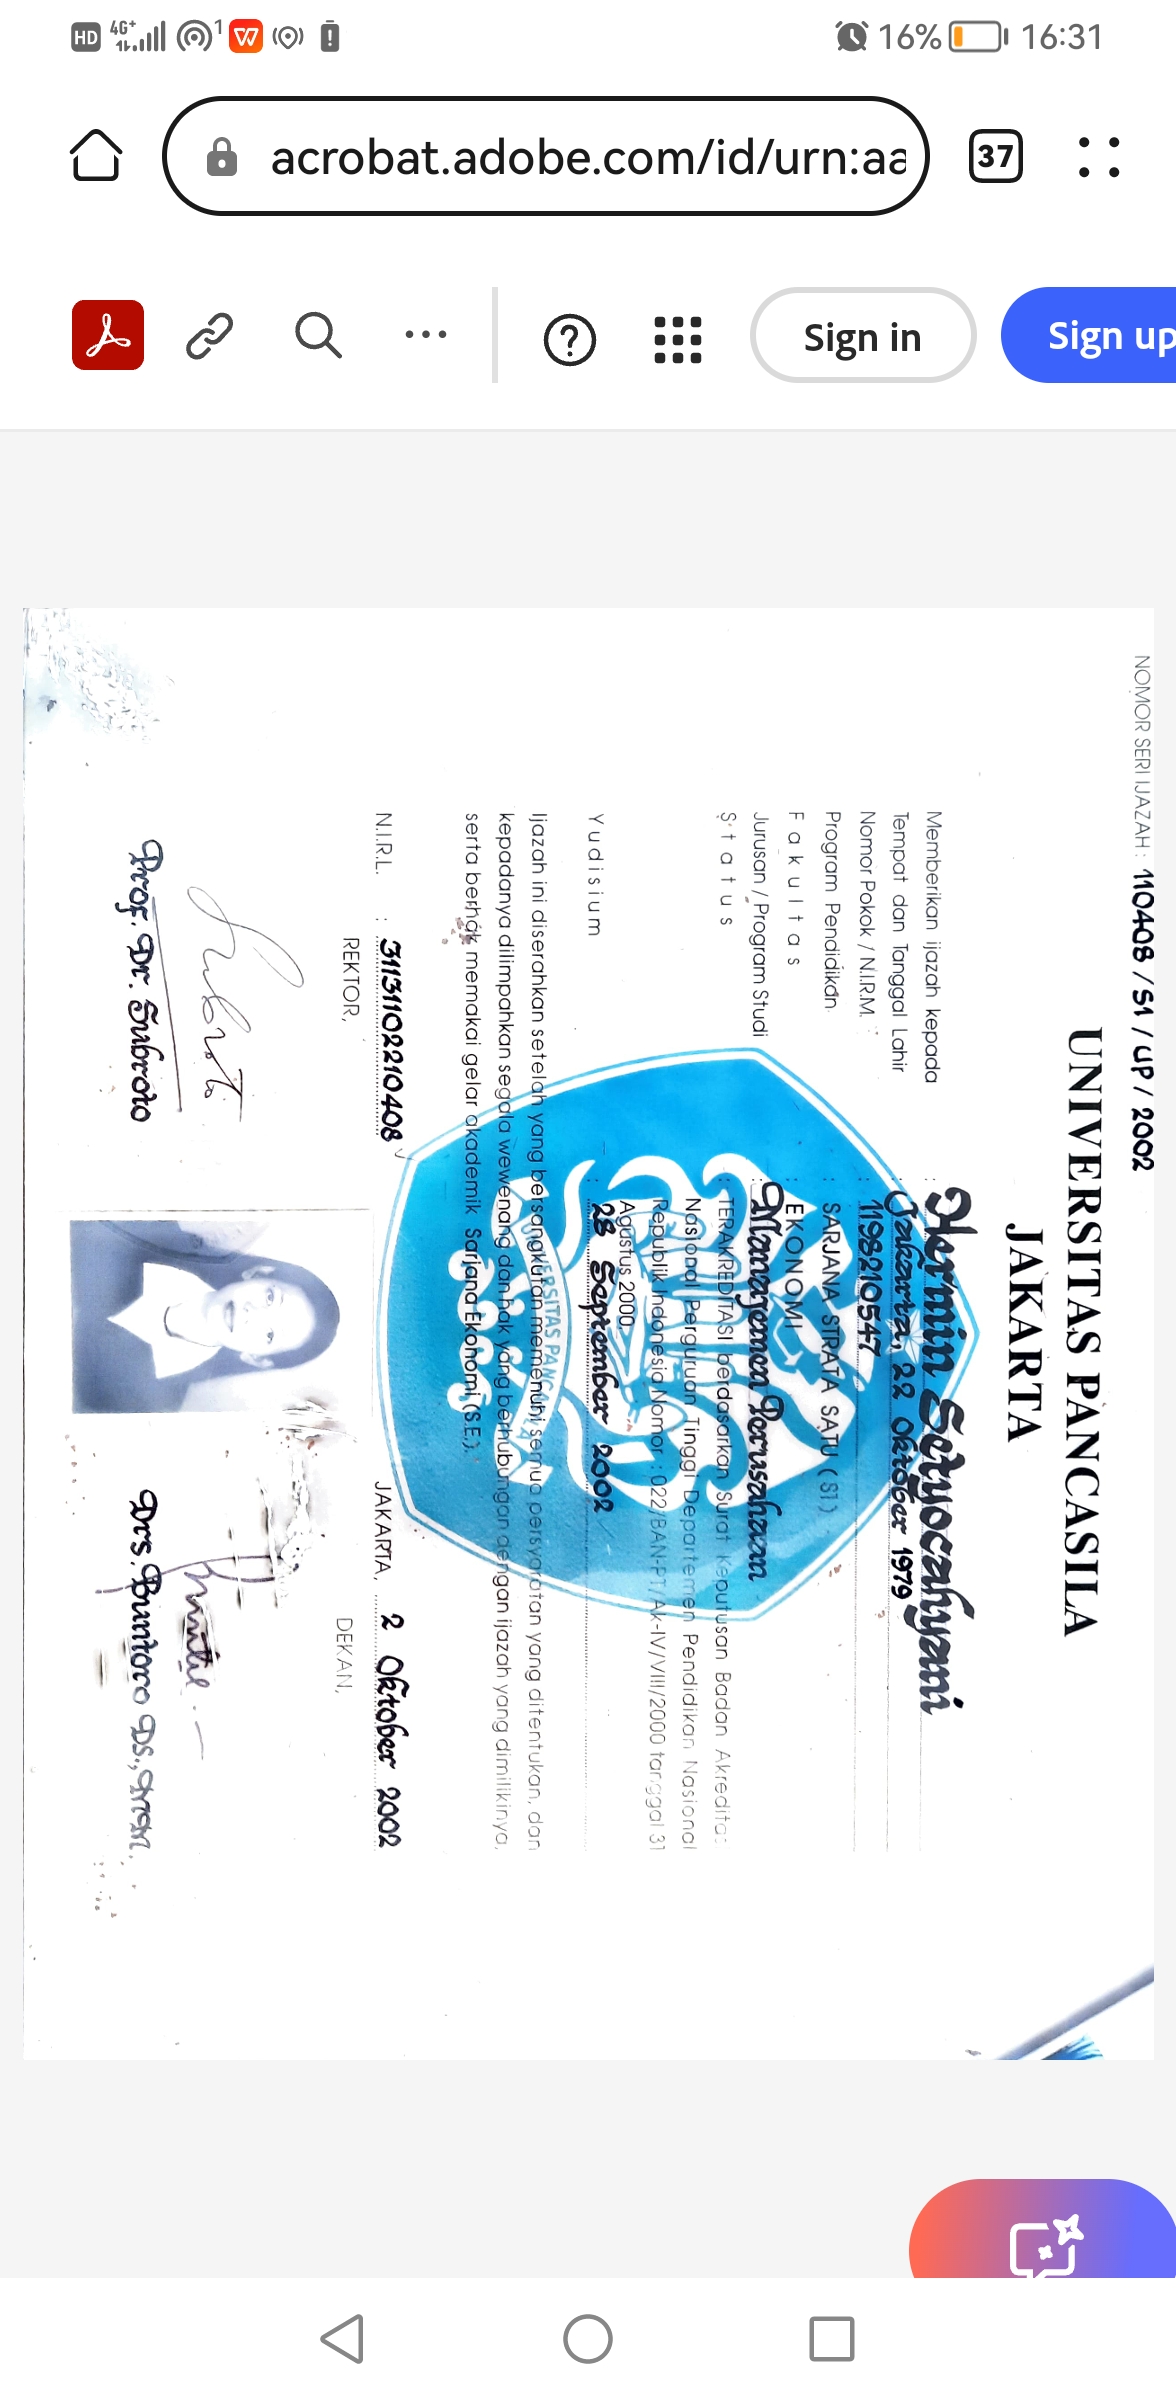 HD 4G+ 1 16% 16:31
acrobat.adobe.com/id/urn:aa
37
Sign in
Sign up
NOMOR SERI IJAZAH : 110408 / S1 / UP / 2002
UNIVERSITAS PANCASILA
JAKARTA
Memberikan ijazah kepada : Hermin Setyocahyani
Tempat dan Tanggal Lahir : Jakarta, 22 Oktober 1979
Nomor Pokok / N.I.R.M. : 1198210547
Program Pendidikan : SARJANA STRATA SATU ( S1 )
Fakultas : EKONOMI
Jurusan / Program Studi : Manajemen Perusahaan
Status : TERAKREDITASI berdasarkan Surat Keputusan Badan Akredita
Nasional Perguruan Tinggi Departemen Pendidikan Nasional
Republik Indonesia Nomor : 022/BAN-PT/Ak-IV/VIII/2000 tanggal 31
Agustus 2000.
Yudisium : 28 September 2002
Ijazah ini diserahkan setelah yang bersangkutan memenuhi semua persyaratan yang ditentukan, dan
kepadanya dilimpahkan segala wewenang dan hak yang berhubungan dengan ijazah yang dimilikinya,
serta berhak memakai gelar akademik Sarjana Ekonomi (S.E.).
UNIVERSITAS PANCASILA
N.I.R.L. : 31131102210408
JAKARTA, 2 Oktober 2002
REKTOR,
DEKAN,
Prof. Dr. Subroto
Drs. Buntoro DS., MM.